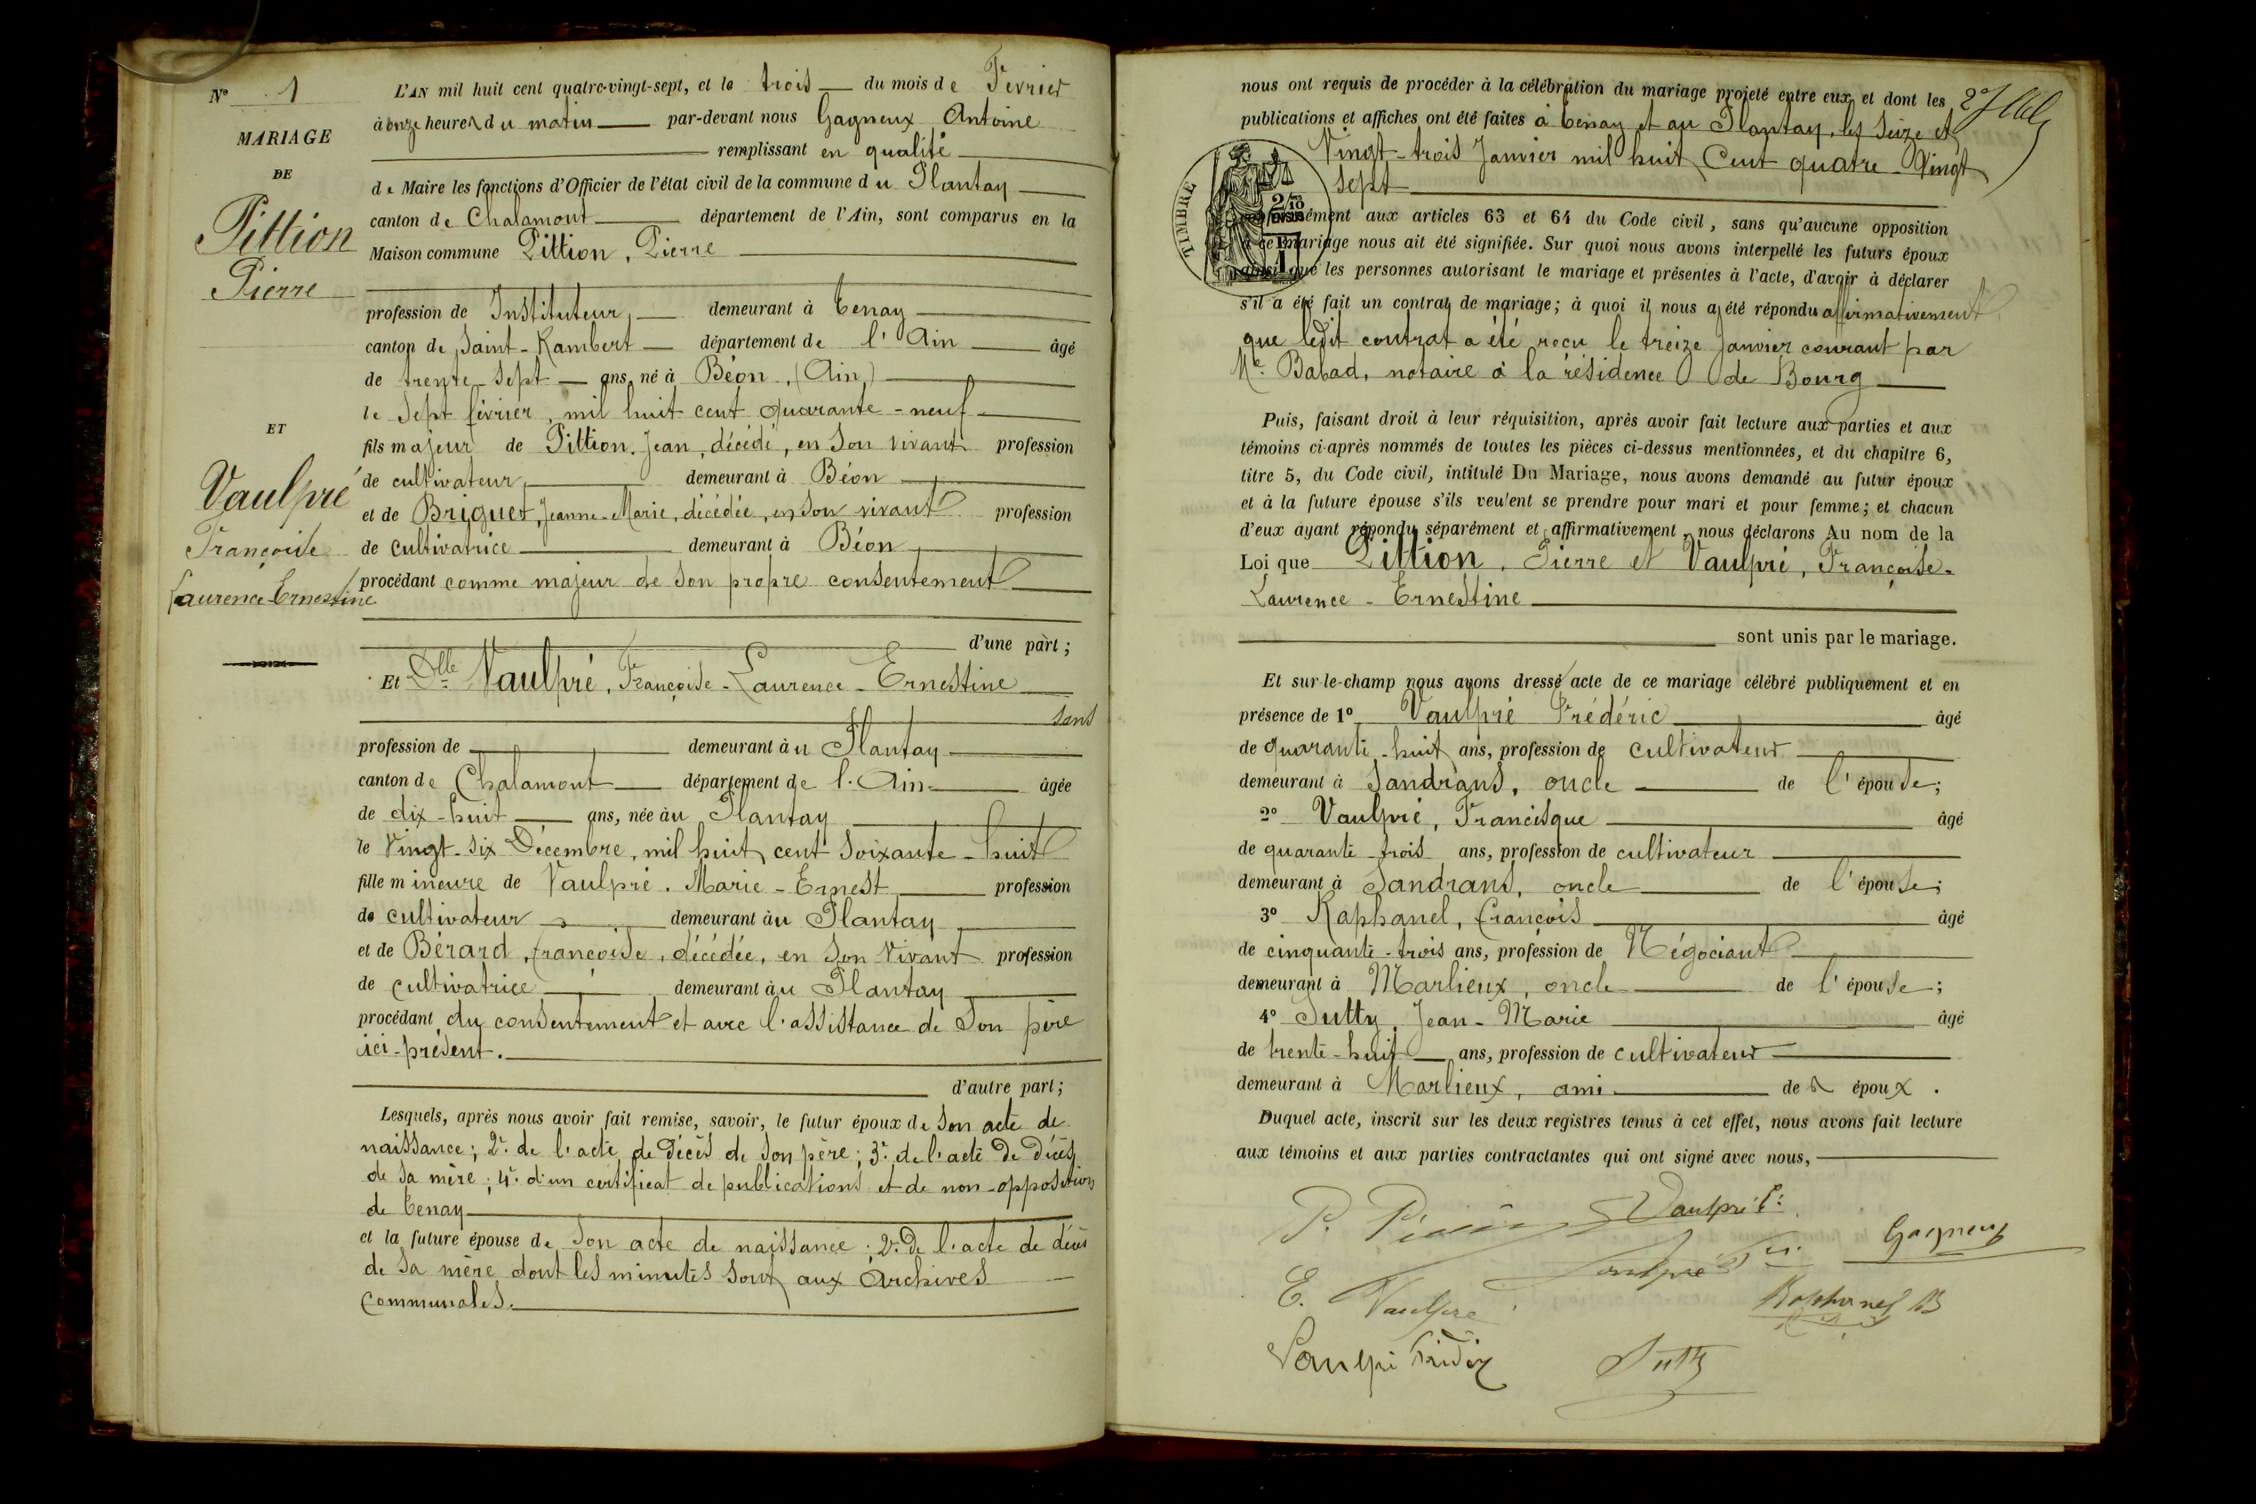 N° 1
MARIAGE
DE
Pittion
Pierre
ET
Vaulpré
Françoise
Laurence-Ernestine
L'AN mil huit cent quatre-vingt-sept, et le trois du mois de Fevrier
à onze heures du matin par-devant nous Gagneux Antoine
remplissant en qualité
de Maire les fonctions d'Officier de l'état civil de la commune du Plantay
canton de Chalamont département de l'Ain, sont comparus en la
Maison commune Pittion, Pierre
profession de Instituteur, demeurant à Tenay
canton de Saint-Rambert département de l'Ain âgé
de trente-sept ans, né à Béon, (Ain)
le sept février, mil huit cent quarante-neuf
fils majeur de Pittion, Jean, décédé, en son vivant profession
de cultivateur, demeurant à Béon
et de Briguet, Jeanne-Marie, décédée, en son vivant profession
de cultivatrice demeurant à Béon
procédant comme majeur de son propre consentement
d'une part;
Et Dlle Vaulpré, Françoise-Laurence-Ernestine
sans
profession de demeurant au Plantay
canton de Chalamont département de l'Ain âgée
de dix-huit ans, née au Plantay
le Vingt-six Décembre, mil huit cent soixante-huit
fille mineure de Vaulpré, Marie-Ernest profession
de cultivateur demeurant au Plantay
et de Bérard, françoise, décédée, en son vivant profession
de cultivatrice demeurant au Plantay
procédant du consentement et avec l'assistance de son père
ici-présent.
d'autre part;
Lesquels, après nous avoir fait remise, savoir, le futur époux de son acte de
naissance; 2°. de l'acte de décès de son père; 3°. de l'acte de décès
de sa mère; 4°. d'un certificat de publications et de non-opposition
de Tenay
et la future épouse de son acte de naissance; 2°. de l'acte de décès
de sa mère dont les minutes sont aux archives
communales.
nous ont requis de procéder à la célébration du mariage projeté entre eux et dont les
publications et affiches ont été faites à Tenay et au Plantay, les seize et
Vingt-trois Janvier mil huit Cent quatre-Vingt
sept
TIMBRE
conformément aux articles 63 et 64 du Code civil, sans qu'aucune opposition
à ce mariage nous ait été signifiée. Sur quoi nous avons interpellé les futurs époux
ainsi que les personnes autorisant le mariage et présentes à l'acte, d'avoir à déclarer
s'il a été fait un contrat de mariage; à quoi il nous a été répondu affirmativement
que ledit contrat a été reçu le treize Janvier courant par
Me. Babad, notaire à la résidence de Bourg
Puis, faisant droit à leur réquisition, après avoir fait lecture aux parties et aux
témoins ci-après nommés de toutes les pièces ci-dessus mentionnées, et du chapitre 6,
titre 5, du Code civil, intitulé Du Mariage, nous avons demandé au futur époux
et à la future épouse s'ils veulent se prendre pour mari et pour femme; et chacun
d'eux ayant répondu séparément et affirmativement, nous déclarons Au nom de la
Loi que Pittion, Pierre et Vaulpré, Françoise-
Laurence-Ernestine
sont unis par le mariage.
Et sur-le-champ nous avons dressé acte de ce mariage célébré publiquement et en
présence de 1° Vaulpré Frédéric âgé
de quarante-huit ans, profession de cultivateur
demeurant à Sandrans, oncle de l'épouse;
2° Vaulpré, Francisque âgé
de quarante-trois ans, profession de cultivateur
demeurant à Sandrans, oncle de l'épouse;
3° Raphanel, françois âgé
de cinquante-trois ans, profession de Négociant
demeurant à Marlieux, oncle de l'épouse;
4° Sutty, Jean-Marie âgé
de trente-huit ans, profession de cultivateur
demeurant à Marlieux, ami de époux.
Duquel acte, inscrit sur les deux registres tenus à cet effet, nous avons fait lecture
aux témoins et aux parties contractantes qui ont signé avec nous,
P. Pittion
Vaulpré
Gagneux
Vaulpré
E. Vaulpré
Raphanel
Vaulpré
Sutty